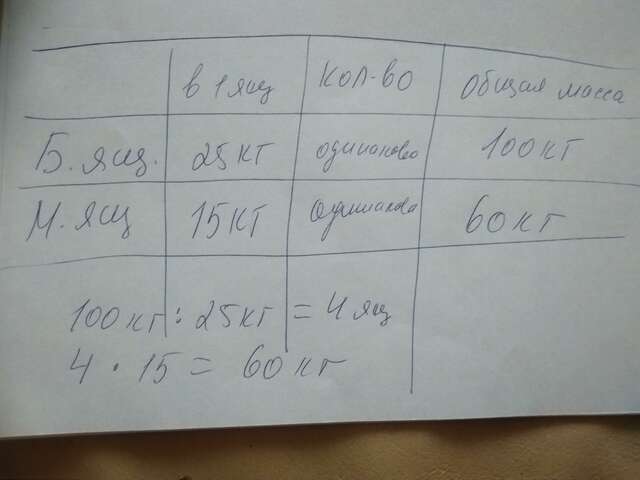 в 1 ящ кол-во общая масса
Б. ящ. 25 кг одинаково 100 кг
М. ящ 15 кг одинаково 60 кг
100 кг : 25 кг = 4 ящ
4 · 15 = 60 кг